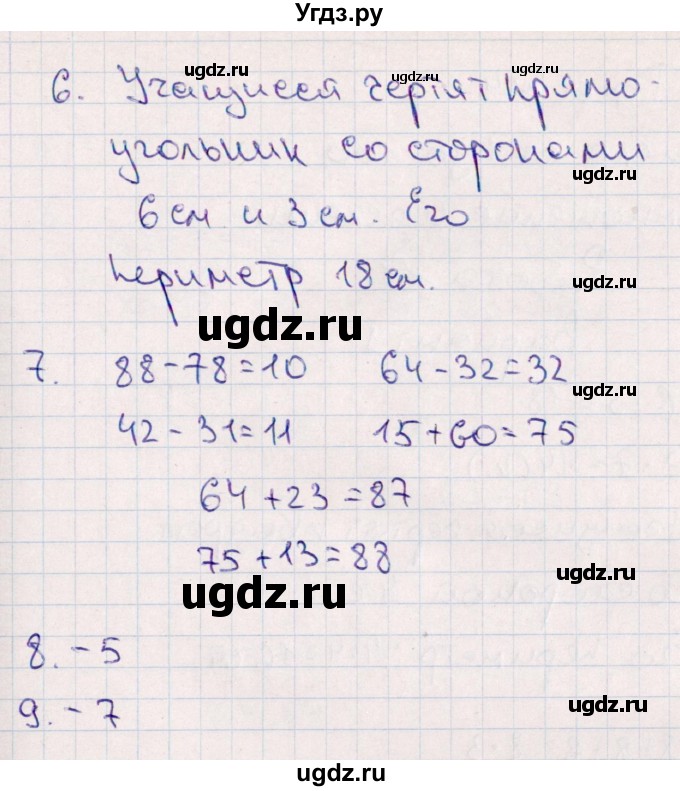 Угдз.ру
ugdz.ru ugdz.ru
6. Учащиеся чертят прямо-
ugdz.ru
угольник со сторонами
ugdz.ru
6 см и 3 см. Его
периметр 18 см.
ugdz.ru
ugdz.ru
7. 88-78=10 64-32=32
ugdz.ru
42-31=11 15+60=75
64+23=87
75+13=88
ugdz.ru
ugdz.ru
8. - 5
9. - 7
ugdz.ru
ugdz.ru